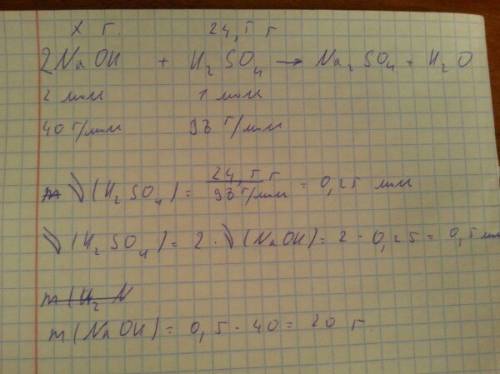 x г. 24,5 г
2NaOH + H₂SO₄ → Na₂SO₄ + H₂O
2 моль 1 моль
40 г/моль 98 г/моль
ν(H₂SO₄) = 24,5 г / 98 г/моль = 0,25 моль
ν(H₂SO₄) = 2 · ν(NaOH) = 2 · 0,25 = 0,5 моль
m(H₂N
m(NaOH) = 0,5 · 40 = 20 г